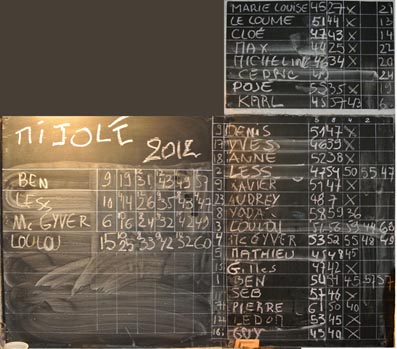 MARIE LOUISE 45 27 X 21
LE LOUME 51 44 X 13
CLOÉ 47 43 X 14
MAX 44 25 X 22
MICHELINE 46 34 X 20
CEDRIC X 24
POJÉ 55 35 X 19
KARL 48 57 43 6
MIJOLÉ
2012
BEN 9 19 31 42 49 57
LESS 10 14 26 35 43 47
Mc GYVER 6 16 24 33 42 49
LOULOU 15 25 33 42 52 60
DENIS 51 47 X
17 YVES 46 39 X
18 ANNE 52 38 X
2 LESS 47 54 50 55 47
9 XAVIER 51 47 X
23 AUDREY 48 7 X
8 YODA 58 59 36
3 LOULOU 59 44 63
4 Mc GYVER 53 52 55 48 49
5 MATHIEU 45 48 45
15 Gilles 47 42 X
1 BEN 54 51 45 57 57
SEB 57 46 X
7 PIERRE 61 50 40
12 LEDON 53 45 X
16 GUY 43 40 X